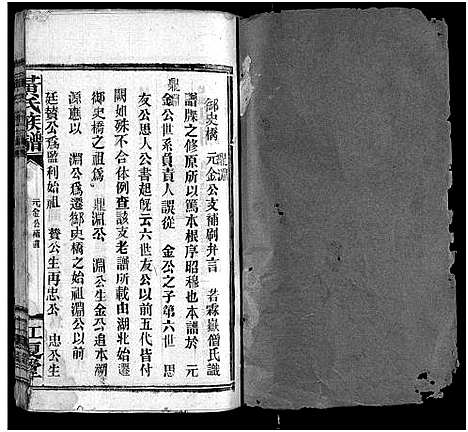 御史橋鼎淵元金公支補刷弁言 若霖嶽僧氏識
譜牒之修原所以篤本根序昭穆也本譜於 元
鼎淵
金公世系負責人誤從 金公之子第六世 思
友公思人公書起旣云六世友公以前五代皆付
闕如殊不合体例查該支老譜所載由湖北始遷
御史橋之祖爲 鼎淵公 淵公生金公追本溯
源應以 淵公爲遷御史橋之始祖淵公以前
廷贊公爲監利始祖 贊公生再忠公 忠公生
黃氏族譜
元金公補遺
江夏堂